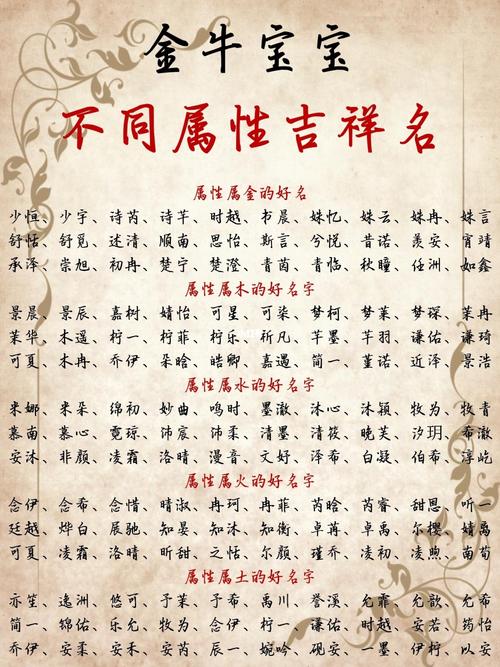 金牛宝宝
不同属性吉祥名
属性属金的好名
少恒、少宇、诗芮、诗芊、时越、书晨、姝忆、姝云、姝冉、姝言
舒恬、舒觅、述清、顺南、思怡、斯言、兮悦、昔诺、羡安、宵靖
承泽、崇旭、初冉、楚宁、楚澄、青茵、青临、秋瞳、任洲、如鑫
属性属木的好名字
景晨、景辰、嘉树、婧怡、可星、可柒、梦柯、梦茉、梦琛、茉冉
茉华、木遥、柠一、柠菲、柠乐、祈凡、芊墨、芊羽、谦佑、谦琦
可夏、木冉、乔伊、朵晗、皓卿、嘉遇、简一、堇诺、近泽、景浩
属性属水的好名字
米娜、米朵、绵初、妙曲、鸣时、墨澈、沐心、沐颖、牧为、牧青
慕南、慕心、霓琼、沛宸、沛柔、清墨、清筱、晚芙、汐玥、希澈
安沐、非颜、凌霜、洛晴、漫音、文好、泽希、白凝、伯希、淳屹
属性属火的好名字
念伊、念希、念惜、晴淑、冉珂、冉菲、芮晗、芮睿、甜思、听一
廷越、烨白、辰驰、知晏、知沐、知衡、卓苒、卓禹、尔樱、婧禹
可夏、凌霜、洛晴、昕甜、之恬、尔颜、瑾乔、凌初、凌煦、南荀
属性属土的好名字
亦笙、逸洲、悠可、予茉、予希、禹川、誉溪、允霏、允歆、允希
简一、锦佑、乐允、牧为、念伊、柠一、谦佑、时越、安若、筠怡
乔伊、安柔、安禾、安芮、辰一、砚安、一墨、伊柠、一诺、以安